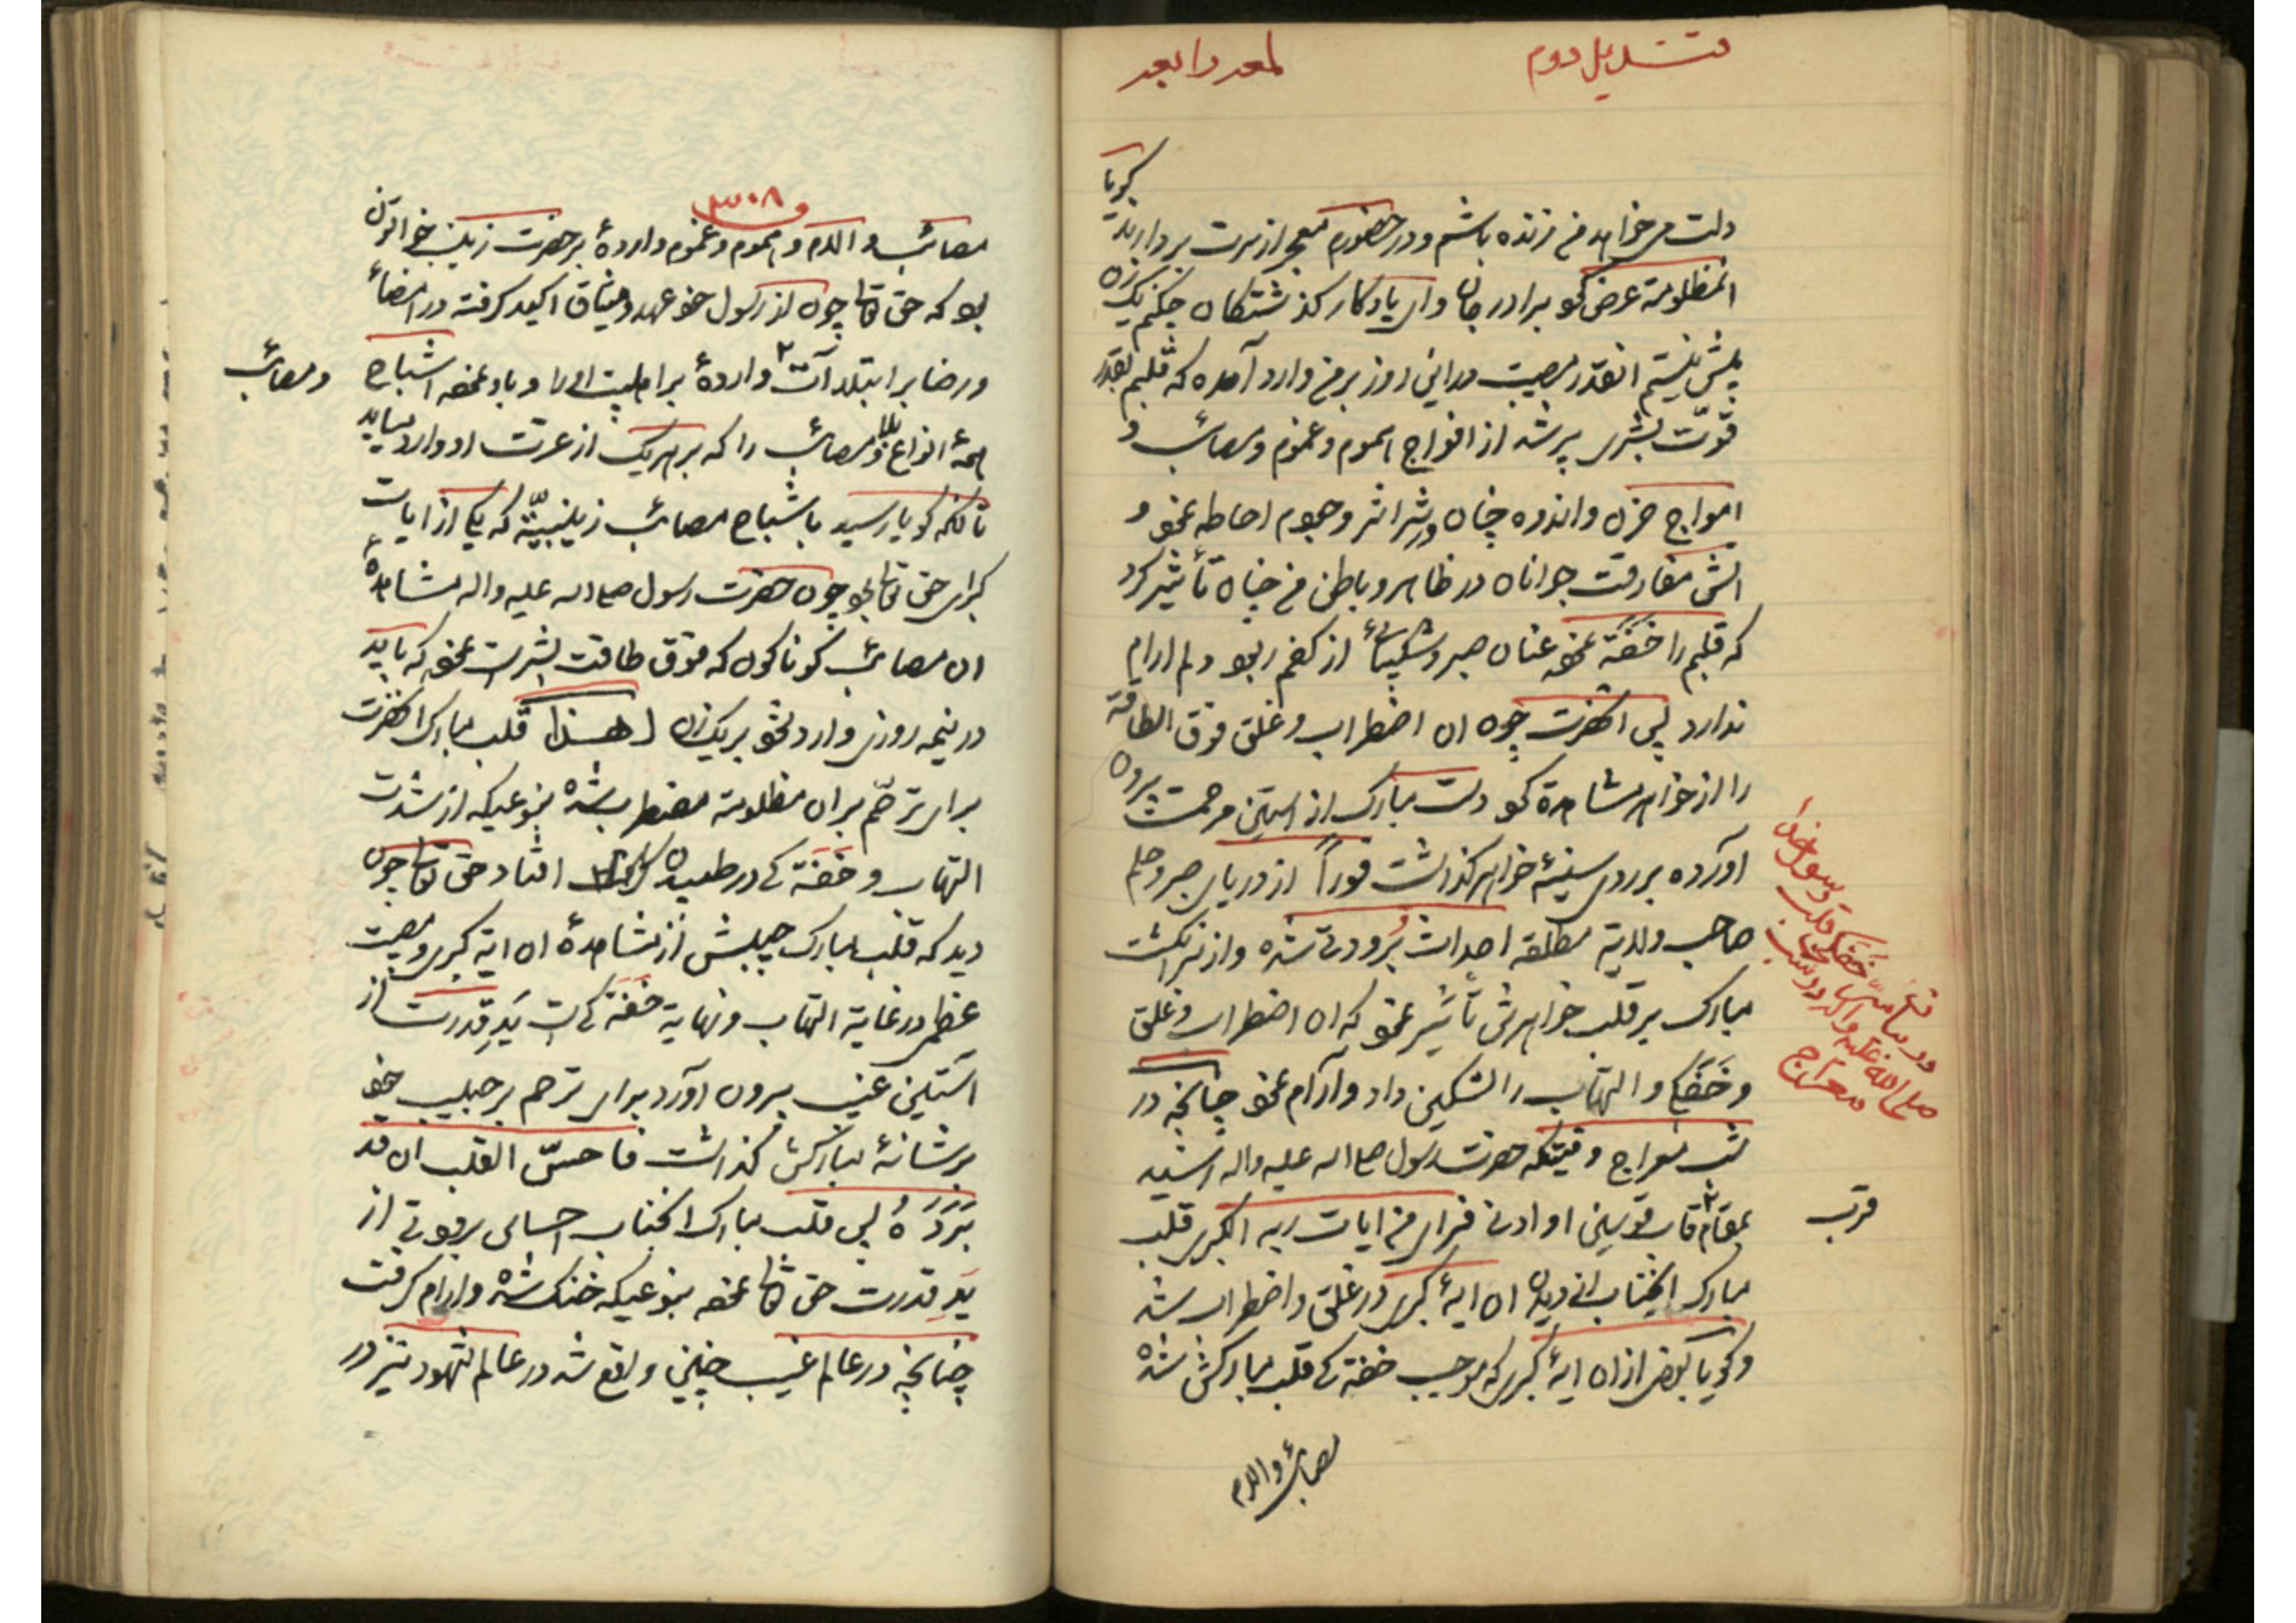 قندیل دوم
لمعه رابعه
دلت می خواهد من زنده باشم و در حضورم معجر از سرت بردارند گویا
المظلومة عرض کو برادر جان وای یادگار گذشتگان چکنم یک زن
بیش نیستم انقدر مصیبت در این روز بر من وارد آمده که قلبم بقدر
قوّت بشری پر شد از افواج هموم و غموم و مصائب و
امواج حزن و اندوه چنان در شراشر وجودم احاطه نمود و
اتش مفارقت جوانان در ظاهر و باطن من چنان تأثیر کرد
که قلبم را خفقة نموده عنان صبر و شکیبائی از کفم ربود دلم ارام
ندارد پس انحضرت چون ان اضطراب و غلق فوق الطاقة
را از خواهر مشاهدة کو دست مبارک از استین مرحمت بیرون
اورده بر روی سینهٔ خواهر گذاشت فوراً از دریای صبر و حلم
صاحب ولایة مطلقه احداث بُرودتی شده و از سر انگشت
مبارک بر قلب خواهرش تأثیر نمود که ان اضطراب و غلق
و خَفَقَ و التهاب را تسکین داد و آرام نمود چنانچه در
شب معراج وقتیکه حضرت رسول صلی اله علیه واله رسید
بمقام قاب قوسین او ادنی فرای من ایات ربه الکبری قلب
قرب
مبارک انجناب از دیدن ان ایهٔ کبری در غلق و اضطراب شد
و گویا بعض از ان ایهٔ کبری که موجب خفقة کی قلب مبارکش شده
مصائب و الام
در بیان سرّ خفقه قلب رسول خدا
صلی الله علیه واله در شب
معراج
۳۰۸
مصائب و الام و هموم و غموم واردهٔ بر حضرت زینب خواتون
بود که حق تعالی چون از رسول خود عهد و میثاق اکید گرفته در امضاء
و رضا بر ابتلاآت واردهٔ بر اهلبیت او را و باو نموده اشباح
و مصائب
همهٔ انواع بلا و مصائب را که بر هر یک از عترت او وارد میاید
تا انکه گویا رسید باشباح مصائب زینبیّة که یکی از ایات
کبرای حق تعالی بود چون حضرت رسول صلی اله علیه واله مشاهدهٔ
ان مصائب گوناگون که فوق طاقت بشریت نمود که باید
در نیمه روزی وارد شود بر یک زن لهذا قلب مبارک انحضرت
برای ترحّم بر ان مظلومة مضطرب شده بنوعیکه از شدت
التهاب و خَفَقَة کی در طپیدن افتاد حق تعالی چون
دید که قلب مبارک حبیبش از مشاهدهٔ ان ایة کبری و مصیبت
عظمی در غایة التهاب و نهایة خَفَقَة کی است یَدِ قدرت از
آستین غیب بیرون آورد برای ترحم بر حبیب خود
بر شانهٔ مبارکش گذاشت فاحسّ القلب ان قد
بَرَدَهُ پس قلب مبارک انجناب احساس برودتی از
یَدِ قدرت حق تعالی نموده بنوعیکه خنک شده و ارام گرفت
چنانچه در عالم غیب چنین واقع شد در عالم شهود نیز در